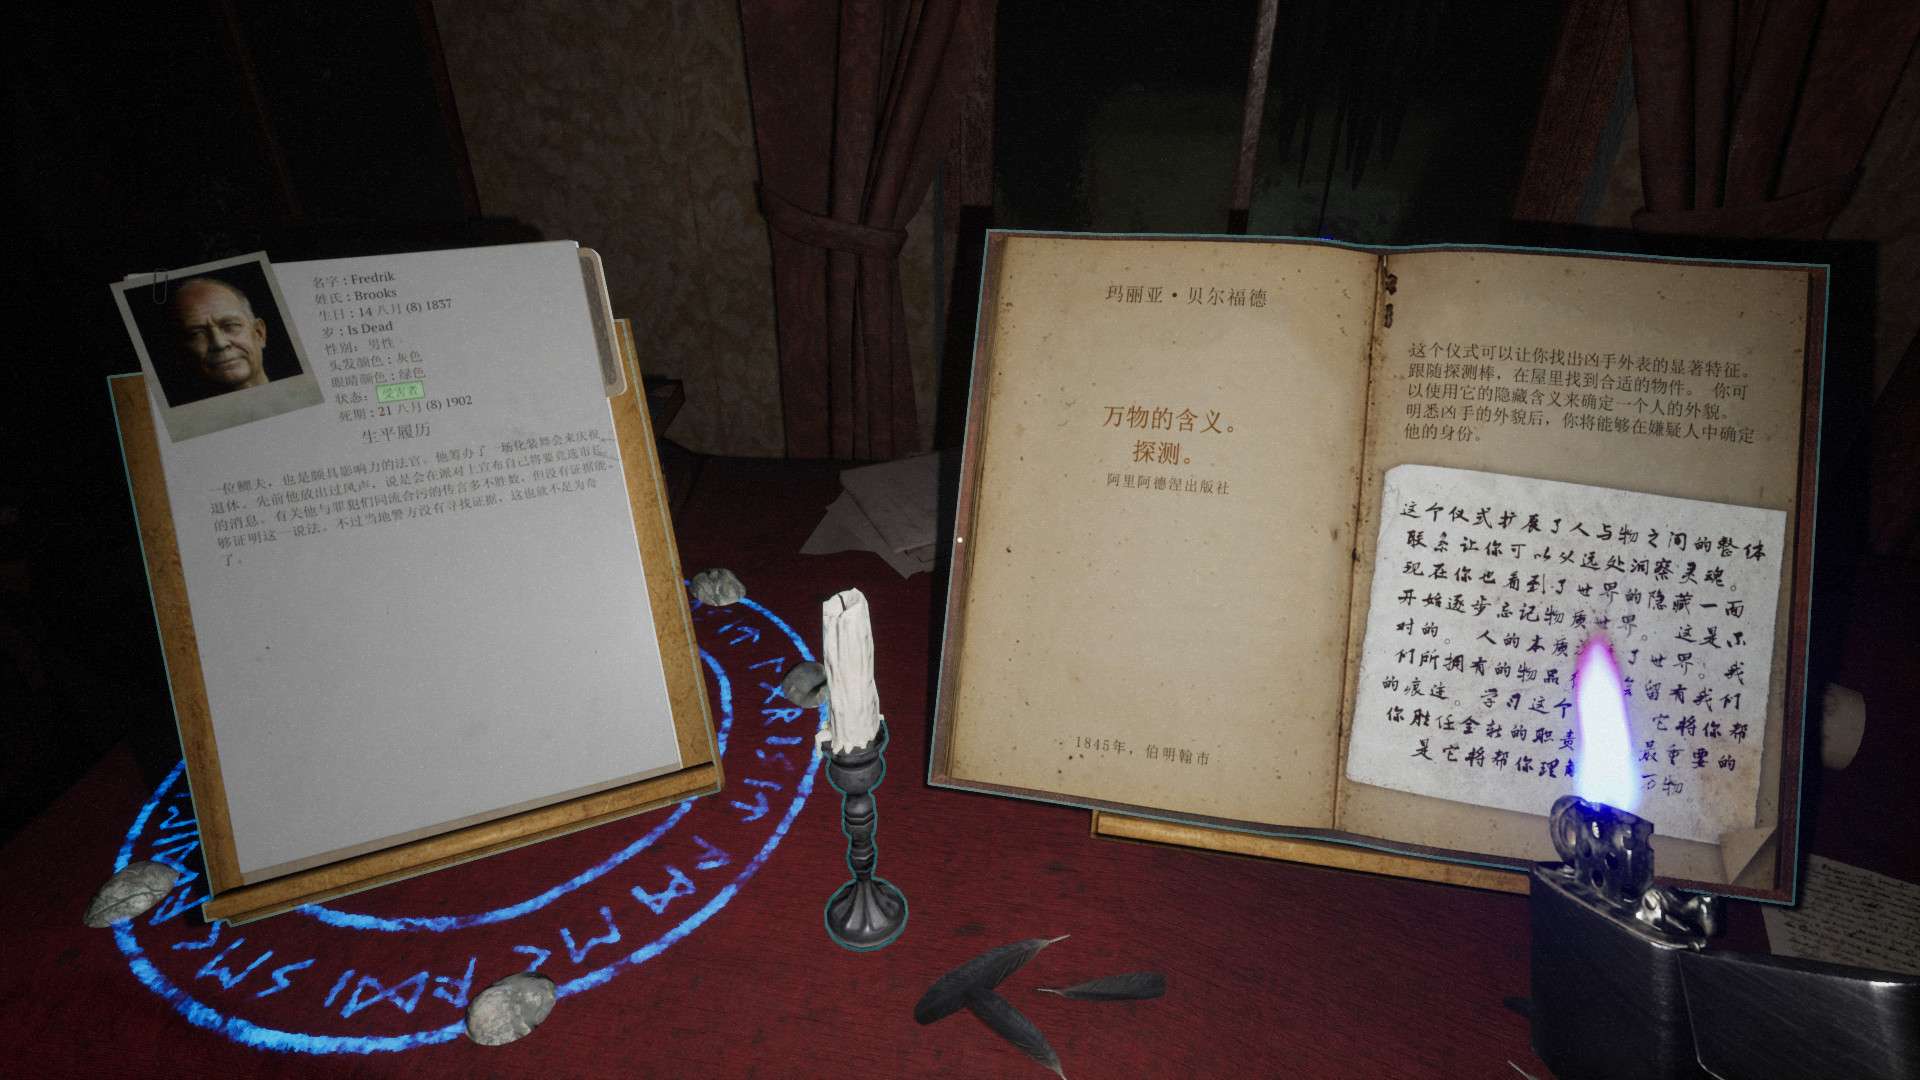 名字：Fredrik
姓氏：Brooks
生日：14 八月 (8) 1837
岁：Is Dead
性别： 男性
头发颜色：灰色
眼睛颜色：绿色
状态： 受害者
死期：21 八月 (8) 1902
生平履历
一位鳏夫，也是颇具影响力的法官。他筹办了一场化装舞会来庆祝
退休。先前他放出过风声，说是会在派对上宣布自己将要竞选市长
的消息。有关他与罪犯们同流合污的传言多不胜数，但没有证据能
够证明这一说法。不过当地警方没有寻找证据，这也就不足为奇
了。
玛丽亚・贝尔福德
万物的含义。
探测。
阿里阿德涅出版社
1845年，伯明翰市
这个仪式可以让你找出凶手外表的显著特征。
跟随探测棒，在屋里找到合适的物件。 你可
以使用它的隐藏含义来确定一个人的外貌。
明悉凶手的外貌后，你将能够在嫌疑人中确定
他的身份。
这个仪式扩展了人与物之间的整体
联系让你可以从远处洞察灵魂。
现在你也看到了世界的隐藏一面
开始逐步忘记物质世界。 这是
对的。 人的本质 了世界。我
们所拥有的物品 留有我们
的痕迹。学习这个 它将你帮
你胜任全新的职责 最重要的
是它将帮你理 万物